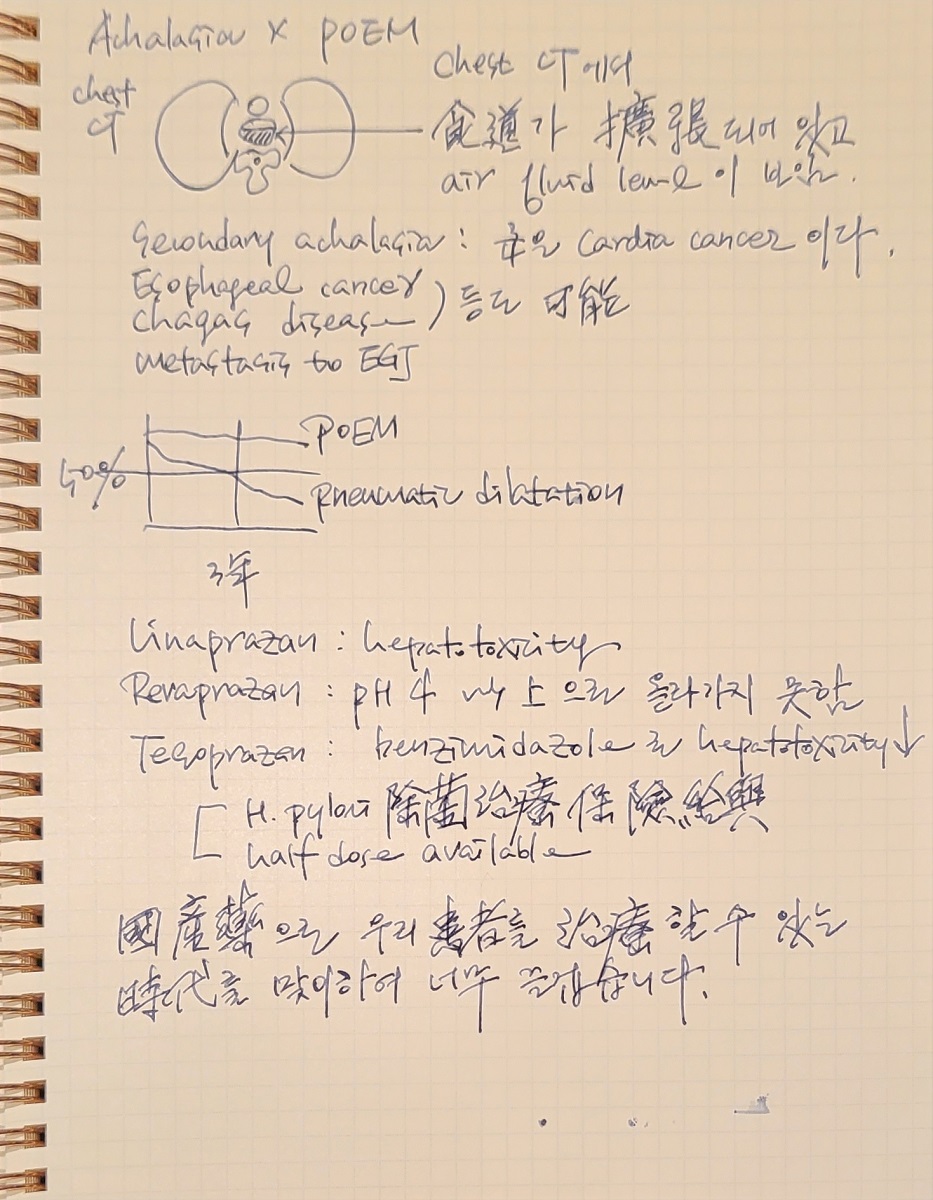 Achalasia x POEM
chest
CT
Chest CT에서
食道가 擴張되어 있고
air fluid level이 보임.
Secondary achalasia : 주로 Cardia cancer 이다.
Esophageal cancer
chagas disease ) 등도 可能
metastasis to EGJ
POEM
50%
Pneumatic dilatation
3年
Linaprazan : hepatotoxicity
Revaprazan : pH 4 以上으로 올라가지 못함
Tegoprazan : benzimidazole로 hepatotoxicity↓
H. pylori 除菌治療 保險給與
half dose available
國産藥으로 우리 患者를 治療할 수 있는
時代를 맞이하여 너무 즐겁습니다.